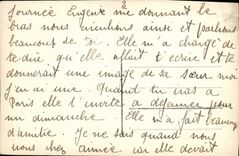 2
journée Eugène me donnant le
bras nous marchions ainsi et parlions
beaucoup de toi. Elle m'a chargé de
te dire qu'elle allait t'écrire et te
donnerait une image de sa sœur moi
j'en ai une Quand tu iras à
Paris elle t'invite à déjeuner pour
un dimanche Elle m'a fait beaucoup
d'amitié. Je ne sais quand nous
irons chez Aimée car elle devait